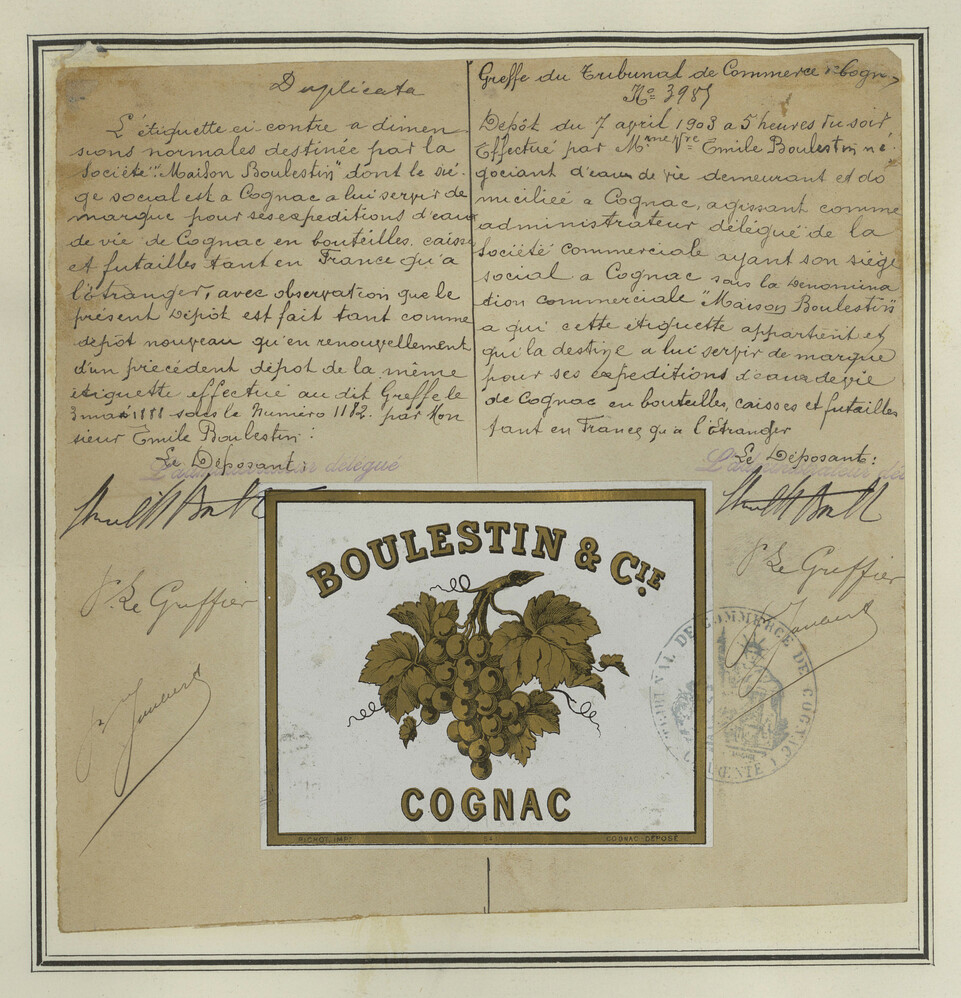 Duplicata
L'étiquette ci-contre a dimen-
sions normales destinée par la
Société "Maison Boulestin" dont le siè-
ge social est a Cognac a lui servir de
marque pour ses expeditions d'eaux
de vie de Cognac en bouteilles, caisses
et futailles tant en France qu'a
l'étranger, avec observation que le
présent Dépôt est fait tant comme
dépôt nouveau qu'en renouvellement
d'un précédent dépôt de la même
étiquette effectué au dit Greffe le
3 mai 1888 sous le Numéro 1182. par Mon
sieur Emile Boulestin :
Le Déposant :
L'administrateur délégué
P. Le Greffier
Greffe du Tribunal de Commerce de Cognac
No 3985
Depôt du 7 avril 1903 a 5 heures du soir
Effectué par Mme Vve Emile Boulestin né-
gociant d'eaux de vie demeurant et do
miciliée a Cognac, agissant comme
administrateur délégué de la
Société commerciale ayant son siège
social a Cognac sous la Dénomina
tion commerciale "Maison Boulestin"
a qui cette étiquette appartient et
qui la destine a lui servir de marque
pour ses expeditions d'eaux de vie
de Cognac en bouteilles, caisses et futailles
tant en France qu'a l'Etranger
Le Déposant :
L'administrateur dé
P. Le Greffier
BOULESTIN & CIE.
COGNAC
PICHOT, IMP.
COGNAC DÉPOSÉ
TRIBUNAL DE COMMERCE DE COGNAC
CHARENTE